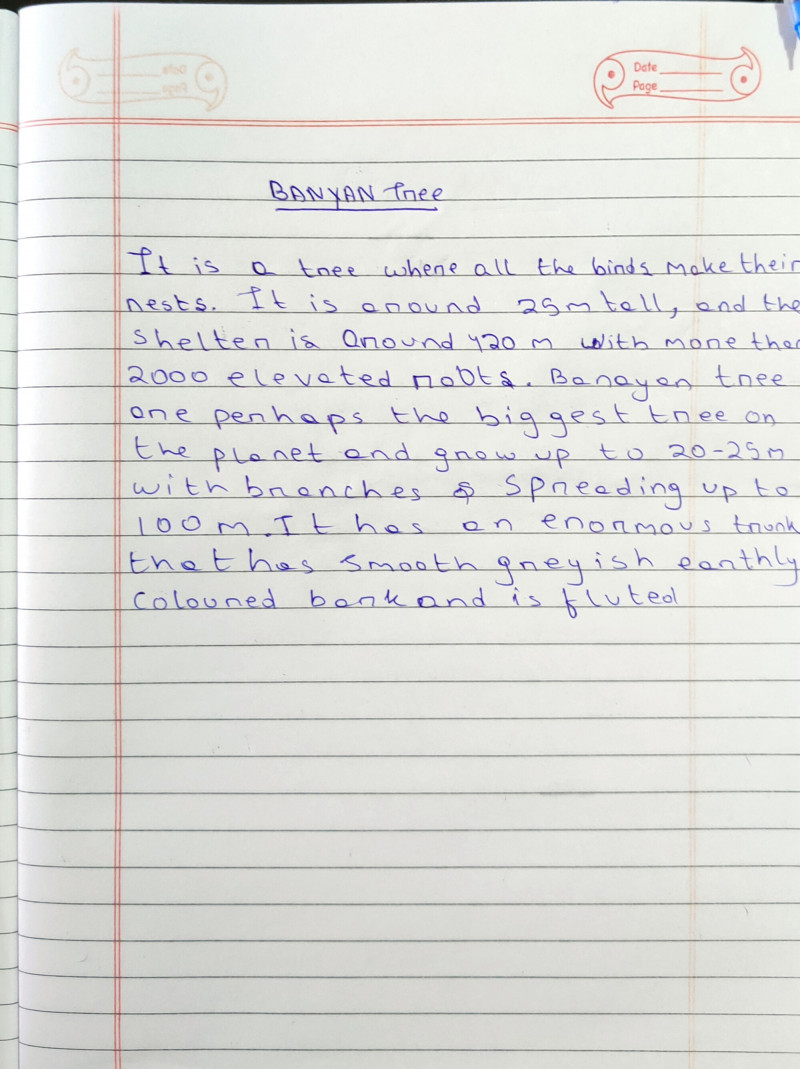 Date
Page
BANYAN Tree
It is a tree where all the birds make their
nests. It is around 25m tall, and the
shelter is around 420 m with more than
2000 elevated roots. Banayan tree
are perhaps the biggest tree on
the planet and grow up to 20-25m
with branches spreading up to
100 m. It has an enormous trunk
that has smooth greyish earthly
coloured bark and is fluted